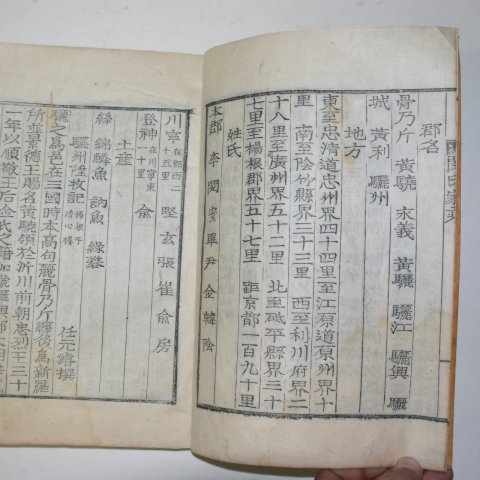 郡名
骨乃斤 黃驍 永義 黃驪 驪江 驪興 驪
城 黃利 驪州
地方
東至忠清道忠州界四十四里至江原道原州界十
里 南至陰竹縣界三十三里 西至利川府界二
十八里至廣州界五十二里 北至砥平縣界三十
七里至楊根郡界五十七里 距京都一百九十里
姓氏
本郡 李 閔 安 畢 尹 金 韓 陰
川寧 在郡西二十五里 堅 玄 張 崔 俞 房
登神 在川寧東一十里 俞
土産
絲 錦鱗魚 訥魚
驪州陞牧記 任元濬撰
驪之爲邑在三國時本高句麗骨乃斤縣後爲新羅
所並景德王賜名黃驍領於沂川前朝忠烈王三十
一年以順敬王后金氏之